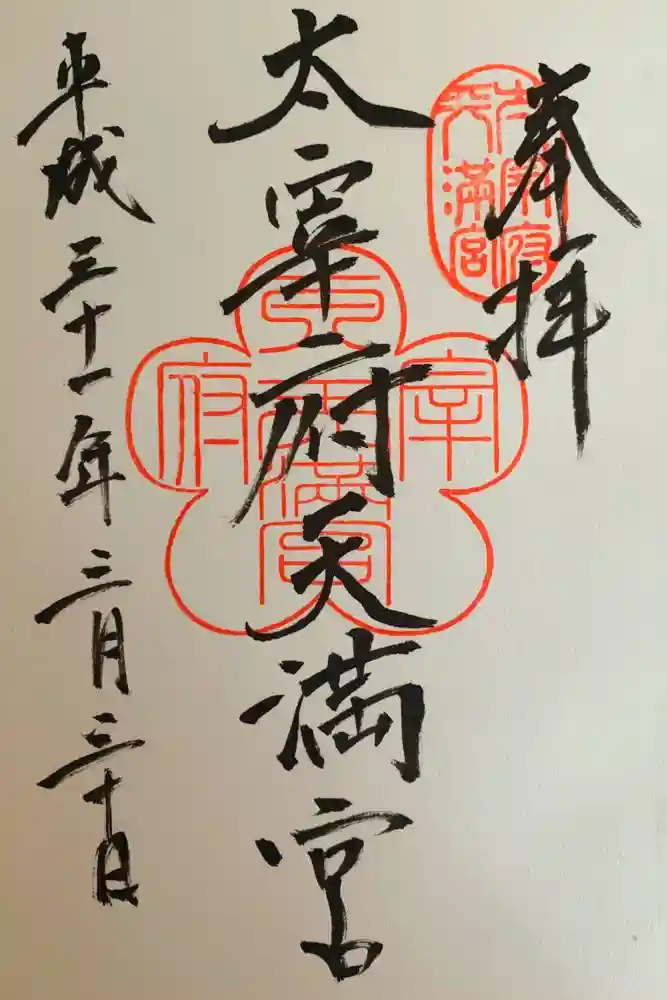 奉拝
太宰府天満宮
太宰府天満宮
宰府天満宮
平成三十一年三月三十日